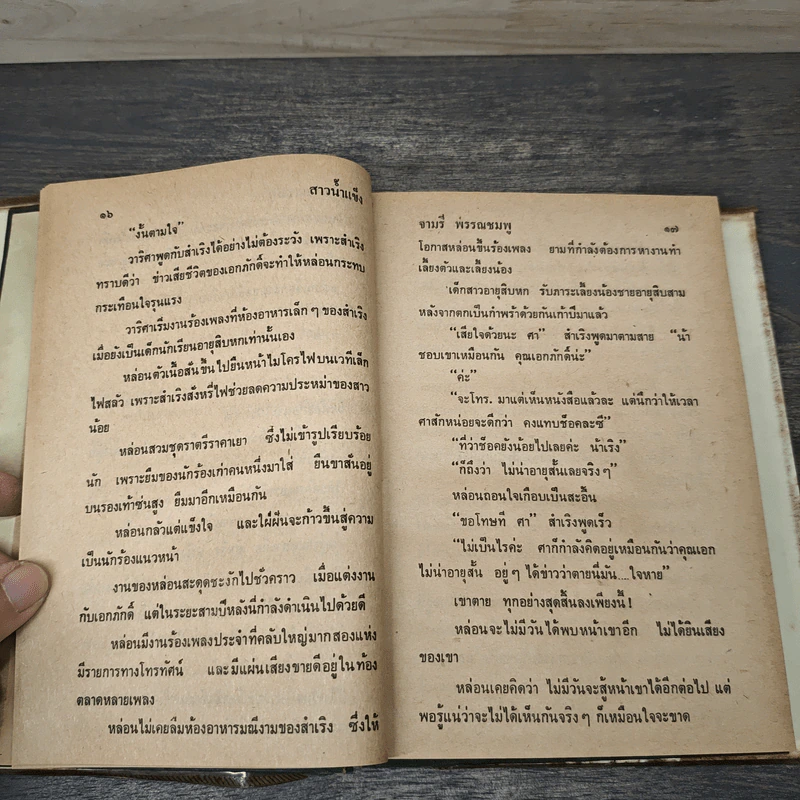 ๑๖
สาวน้ำแข็ง
“งั้นตามใจ”
วาริศาพูดกับสำเริงได้อย่างไม่ต้องระวัง เพราะสำเริง
ทราบดีว่า ข่าวเสียชีวิตของเอกภักดิ์จะทำให้หล่อนกระทบ
กระเทือนใจรุนแรง
วาริศาเริ่มงานร้องเพลงที่ห้องอาหารเล็กๆ ของสำเริง
เมื่อยังเป็นเด็กนักเรียนอายุสิบหกเท่านั้นเอง
หล่อนตัวเนื้อสั่นขึ้นไปยืนหน้าไมโครโฟนบนเวทีเล็ก
ไฟสลัว เพราะสำเริงสั่งหรี่ไฟช่วยลดความประหม่าของสาว
น้อย
หล่อนสวมชุดราตรีราคาเยา ซึ่งไม่เข้ารูปเรียบร้อย
นัก เพราะยืมของนักร้องเก่าคนหนึ่งมาใส่ ยืนขาสั่นอยู่
บนรองเท้าซ่นสูง ยืมมาอีกเหมือนกัน
หล่อนกลัวแต่แข็งใจ และใฝ่ฝันจะก้าวขึ้นสู่ความ
เป็นนักร้องแนวหน้า
งานของหล่อนสะดุดชะงักไปชั่วคราว เมื่อแต่งงาน
กับเอกภักดิ์ แต่ในระยะสามปีหลังนี่กำลังดำเนินไปด้วยดี
หล่อนมีงานร้องเพลงประจำที่คลับใหญ่มากสองแห่ง
มีรายการทางโทรทัศน์ และมีแผ่นเสียงขายดีอยู่ในท้อง
ตลาดหลายเพลง
หล่อนไม่เคยลืมห้องอาหารมณีงามของสำเริง ซึ่งให้
จามรี พรรณชมพู
๑๗
โอกาสหล่อนขึ้นร้องเพลง ยามที่กำลังต้องการหางานทำ
เลี้ยงตัวและเลี้ยงน้อง
เด็กสาวอายุสิบหก รับภาระเลี้ยงน้องชายอายุสิบสาม
หลังจากตกเป็นกำพร้าด้วยกันเก้าปีมาแล้ว
“เสียใจด้วยนะ ศา” สำเริงพูดมาตามสาย “น้า
ชอบเขาเหมือนกัน คุณเอกภักดิ์น่ะ”
“ค่ะ”
“จะโทร. มาแต่เห็นหนังสือแล้วละ แต่นึกว่าให้เวลา
ศาสักหน่อยจะดีกว่า คงแทบช็อคละซี”
“ที่ว่าช็อคยังน้อยไปเลยค่ะ น้าเริง”
“ก็ถึงว่า ไม่น่าอายุสั้นเลยจริงๆ”
หล่อนถอนใจเกือบเป็นสะอื้น
“ขอโทษที ศา” สำเริงพูดเร็ว
“ไม่เป็นไรค่ะ ศาก็กำลังคิดอยู่เหมือนกันว่าคุณเอก
ไม่น่าอายุสั้น อยู่ๆ ได้ข่าวว่าตายนี่มัน....ใจหาย”
เขาตาย ทุกอย่างสุดสิ้นลงเพียงนี้!
หล่อนจะไม่มีวันได้พบหน้าเขาอีก ไม่ได้ยินเสียง
ของเขา
หล่อนเคยคิดว่า ไม่มีวันจะสู้หน้าเขาได้อีกต่อไป แต่
พอรู้แน่ว่าจะไม่ได้เห็นกันจริงๆ ก็เหมือนใจจะขาด